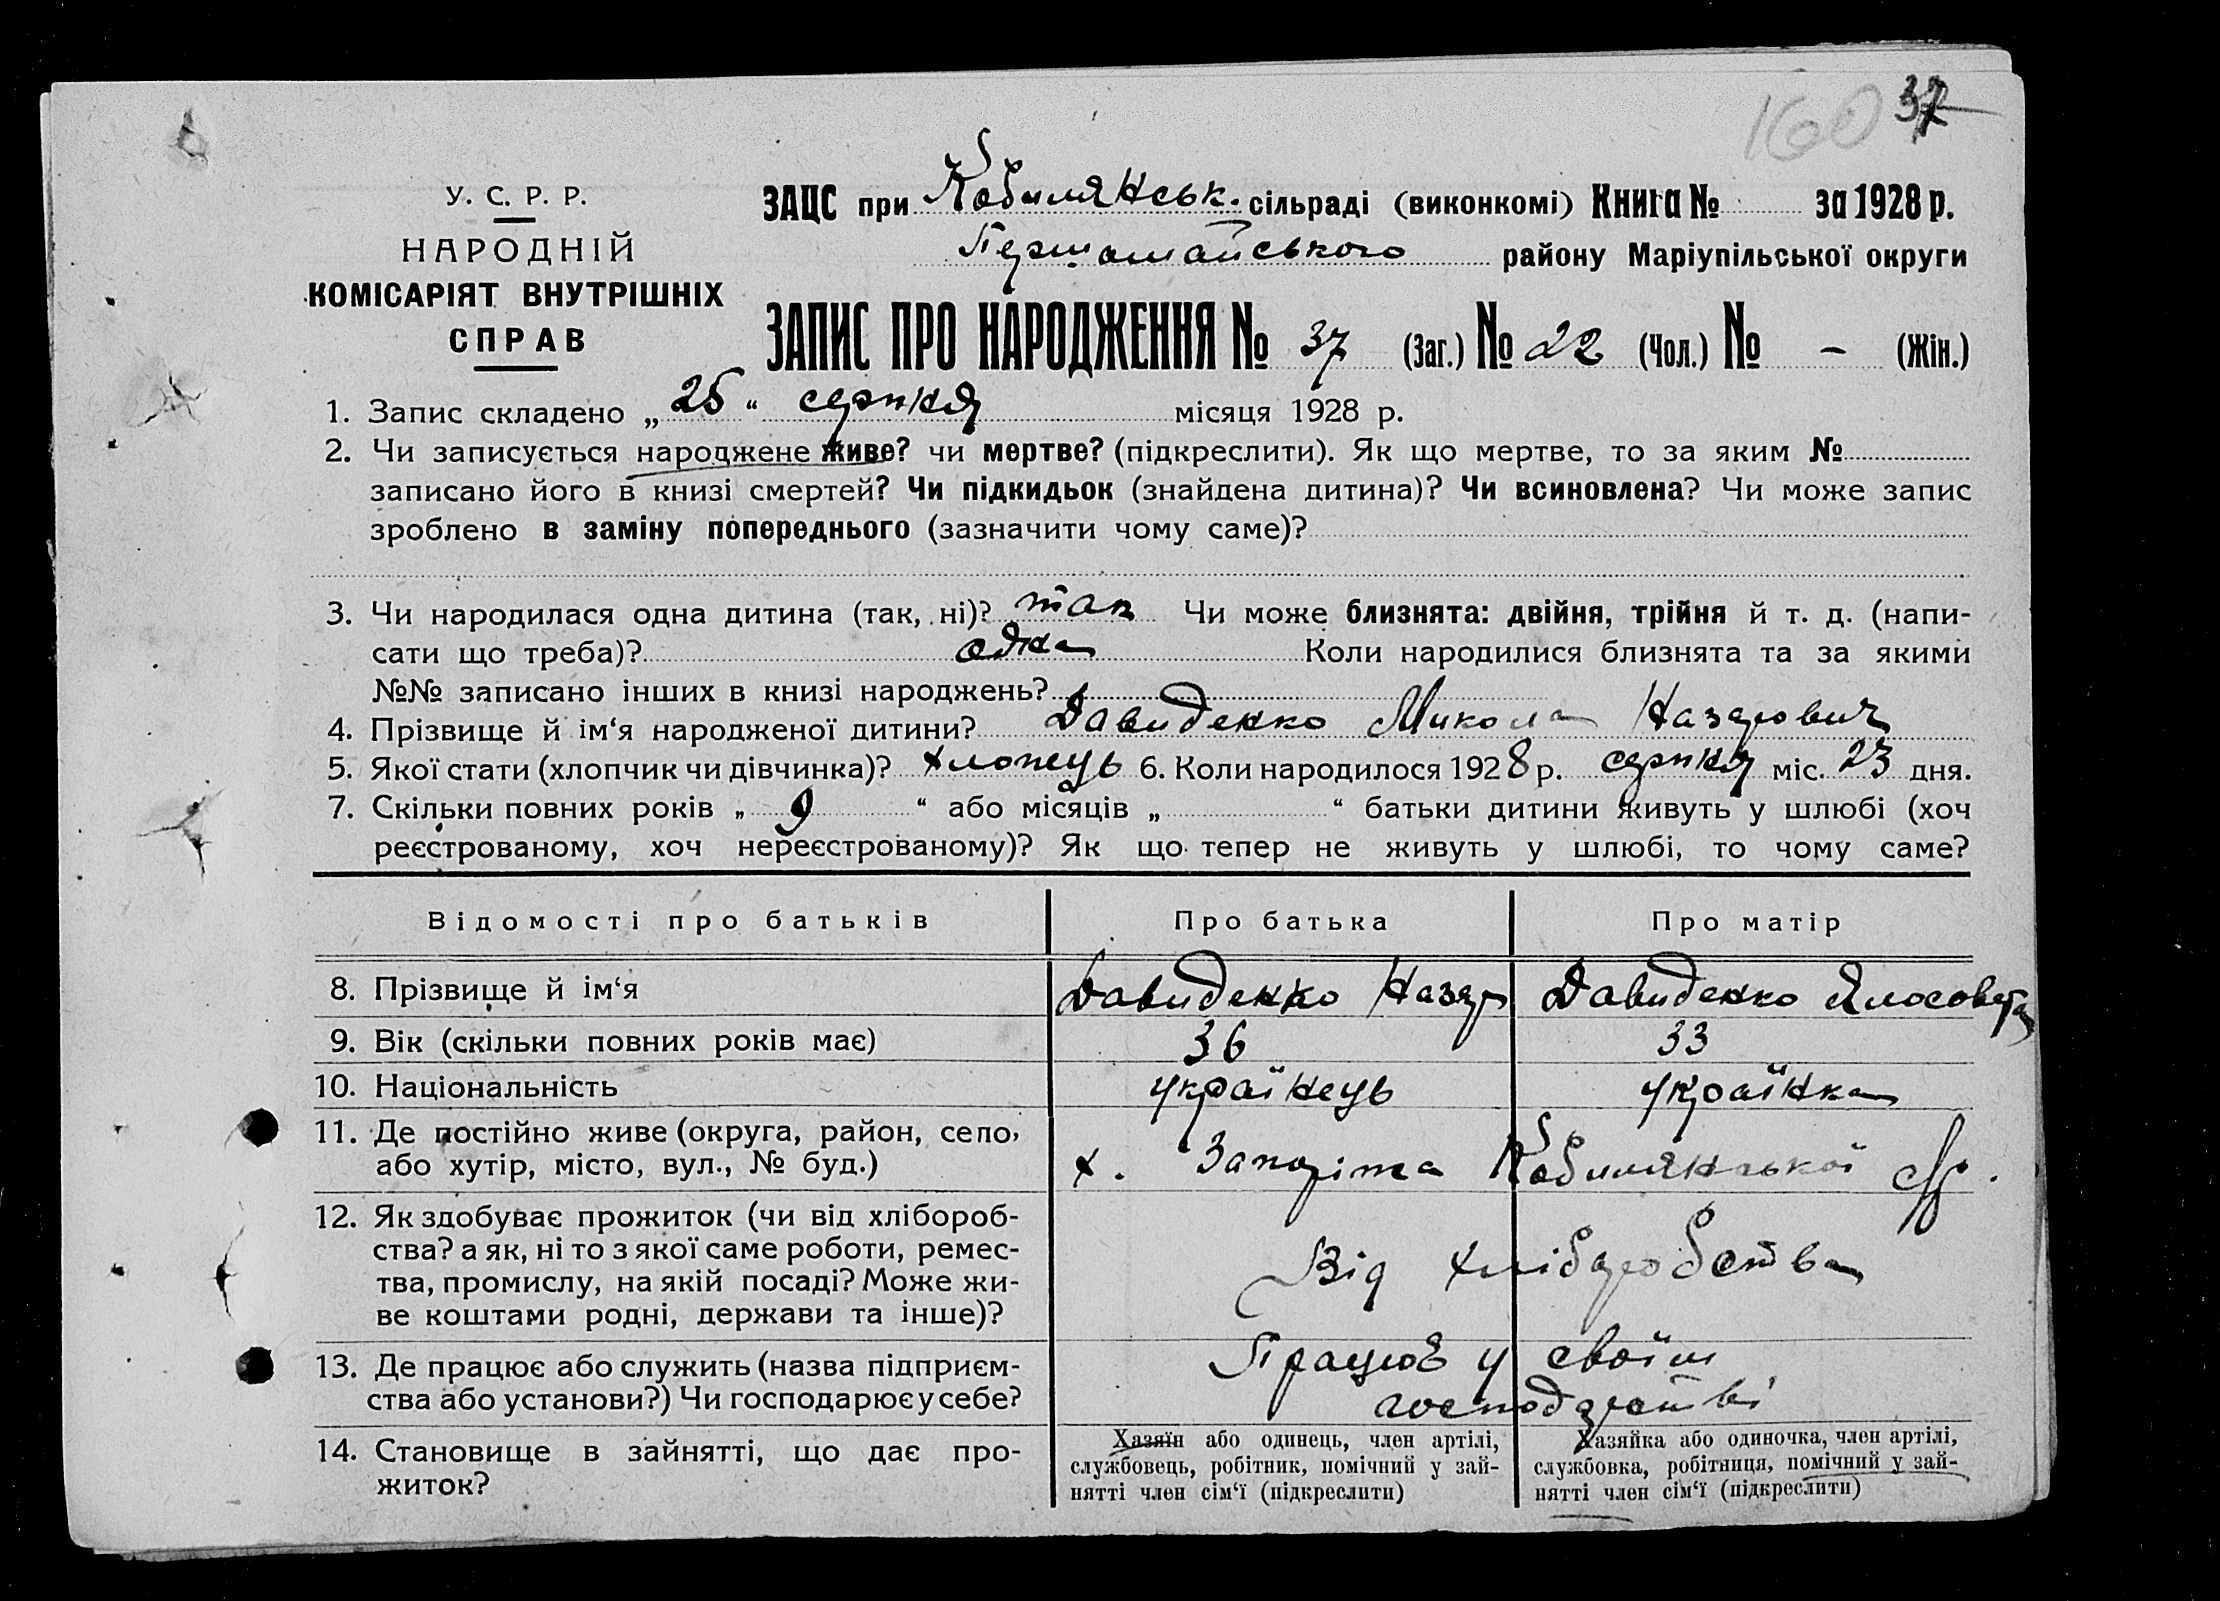 160 37
У. С. Р. Р.
НАРОДНІЙ
КОМІСАРІЯТ ВНУТРІШНІХ
СПРАВ
ЗАЦС при Кобилянськ. сільраді (виконкомі) Книга № за 1928 р.
Першомайського району Маріупільської округи
ЗАПИС ПРО НАРОДЖЕННЯ № 37 (Заг.) № 22 (Чол.) № – (Жін.)
1. Запис складено „ 25 “ серпня місяця 1928 р.
2. Чи записується народжене живе? чи мертве? (підкреслити). Як що мертве, то за яким №
записано його в книзі смертей? Чи підкидьок (знайдена дитина)? Чи всиновлена? Чи може запис
зроблено в заміну попереднього (зазначити чому саме)?
3. Чи народилася одна дитина (так, ні)? так Чи може близнята: двійня, трійня й т. д. (напи-
сати що треба)? одна Коли народилися близнята та за якими
№№ записано інших в книзі народжень?
4. Прізвище й ім‘я народженої дитини? Давиденко Микола Назарович
5. Якої стати (хлопчик чи дівчинка)? хлопець 6. Коли народилося 1928 р. серпня міс. 23 дня.
7. Скільки повних років „ 9 “ або місяців „ “ батьки дитини живуть у шлюбі (хоч
реєстрованому, хоч нереєстрованому)? Як що тепер не живуть у шлюбі, то чому саме?
Відомості про батьків Про батька Про матір
8. Прізвище й ім‘я Давиденко Назар Давиденко Ялосовета
9. Вік (скільки повних років має) 36 33
10. Національність українець українка
11. Де постійно живе (округа, район, село,
або хутір, місто, вул., № буд.) х. Запоріжа Кобилянської с/р.
12. Як здобуває прожиток (чи від хлібороб-
ства? а як, ні то з якої саме роботи, ремес-
тва, промислу, на якій посаді? Може жи-
ве коштами родні, держави та інше)?
Від хліборобства
13. Де працює або служить (назва підприєм-
ства або установи?) Чи господарює у себе?
Працює у своїм
господарстві
14. Становище в зайнятті, що дає про-
житок?
Хазяїн або одинець, член артілі,
службовець, робітник, помічний у зай-
нятті член сім‘ї (підкреслити)
Хазяйка або одиночка, член артілі,
службовка, робітниця, помічний у зай-
нятті член сім‘ї (підкреслити)